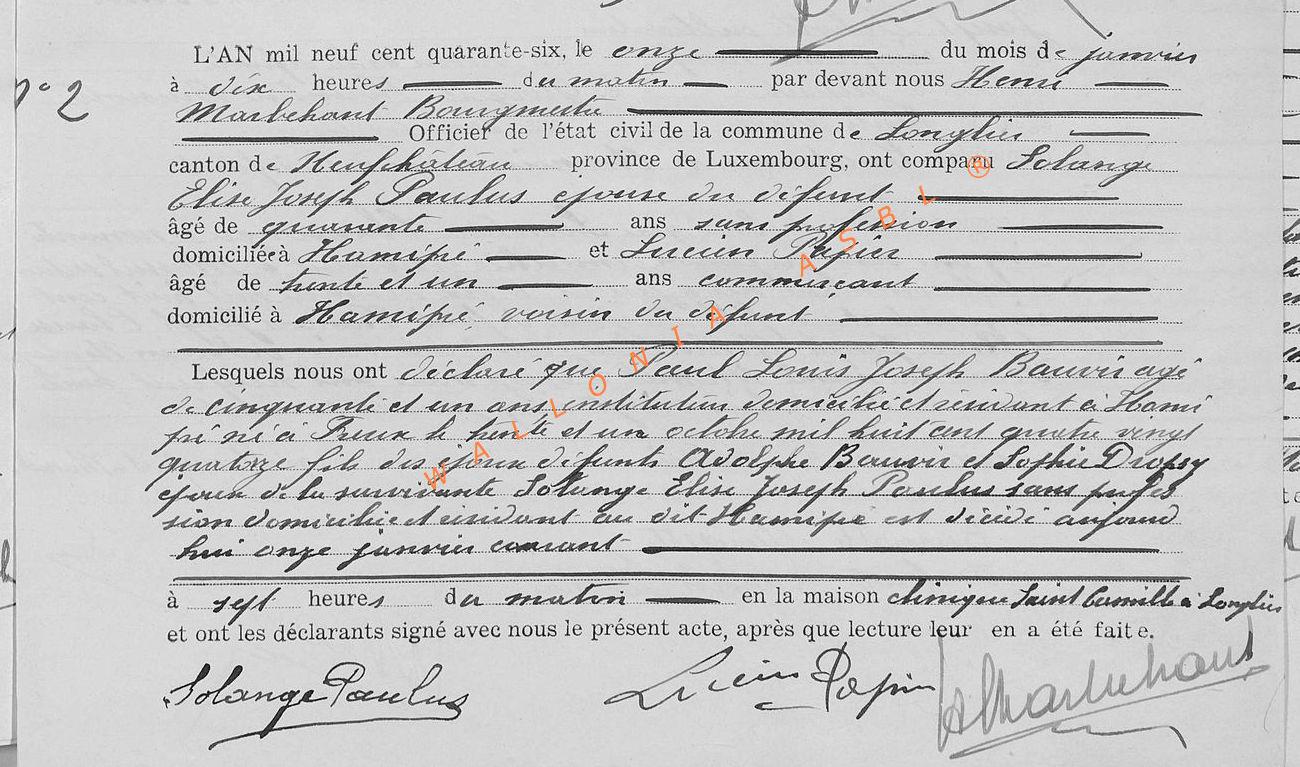 N° 2
L'AN mil neuf cent quarante-six, le onze du mois de janvier
à dix heures du matin par devant nous Henri
Marbehant Bourgmestre
Officier de l'état civil de la commune de Longlier
canton de Neufchâteau province de Luxembourg, ont comparu Solange
Elise Joseph Paulus épouse du défunt
âgé de quarante ans sans profession
domiciliée à Hamipré et Lucien Papier
âgé de trente et un ans commerçant
domicilié à Hamipré, voisin du défunt
Lesquels nous ont déclaré que Paul Louis Joseph Bauvir agé
de cinquante et un ans instituteur domicilié et résidant à Hami
pré né à le trente et un octobre mil huit cent quatre vingt
quatorze fils des époux défunts Adolphe Bauvir et Sophie Dropsy
époux de la survivante Solange Elise Joseph Paulus sans profes
sion domiciliée et résidant au dit Hamipré est décédé aujourd
hui onze janvier courant
à sept heures du matin en la maison clinique Saint Camille à Longlier
et ont les déclarants signé avec nous le présent acte, après que lecture leur en a été faite.
Solange Paulus
Lucien Papier
H Marbehant
WALLONIA ASBL ®